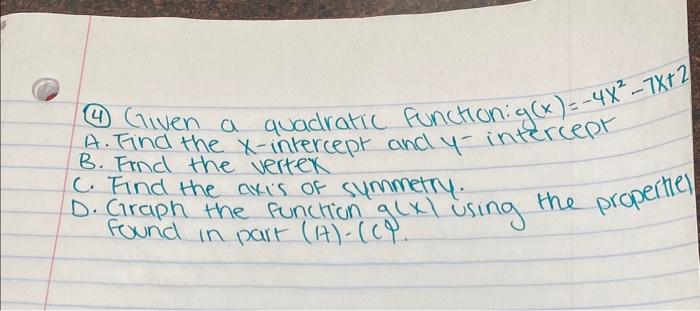 ④ Given a quadratic function: g(x) = -4x² - 7x+2
A. Find the x-intercept and y-intercept
B. Find the vertex
C. Find the axis of symmetry.
D. Graph the function g(x) using the properties
found in part (A)-(C).